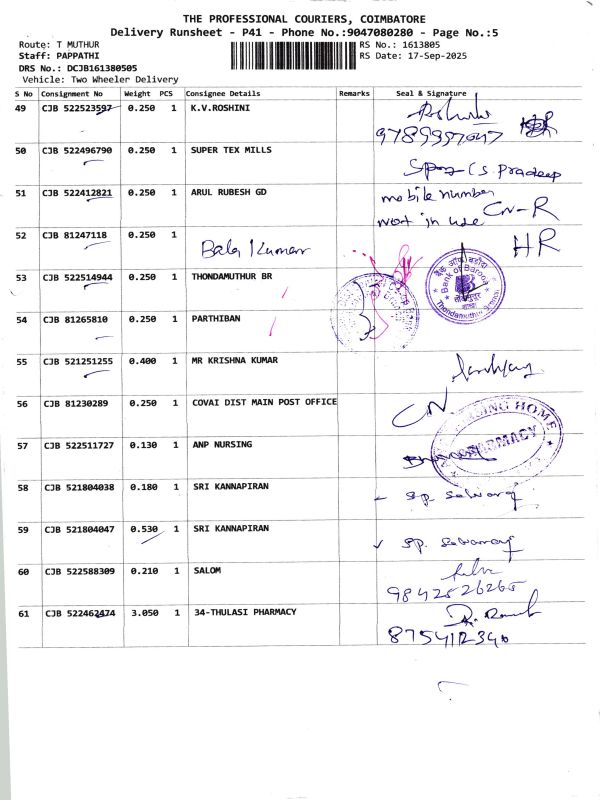 THE PROFESSIONAL COURIERS, COIMBATORE
Delivery Runsheet - P41 - Phone No.:9047080280 - Page No.:5
Route: T MUTHUR
RS No.: 1613805
Staff: PAPPATHI
RS Date: 17-Sep-2025
DRS No.: DCJB161380505
Vehicle: Two Wheeler Delivery
S No Consignment No Weight PCS Consignee Details Remarks Seal & Signature
49 CJB 522523597 0.250 1 K.V.ROSHINI
50 CJB 522496790 0.250 1 SUPER TEX MILLS
(S. Pradeep
51 CJB 522412821 0.250 1 ARUL RUBESH GD
mobile number
not in use CN-R
52 CJB 81247118 0.250 1
Bala Kumar
HR
53 CJB 522514944 0.250 1 THONDAMUTHUR BR
Bank of Baroda
54 CJB 81265810 0.250 1 PARTHIBAN
55 CJB 521251255 0.400 1 MR KRISHNA KUMAR
56 CJB 81230289 0.250 1 COVAI DIST MAIN POST OFFICE
CN
NURSING HOME
PHARMACY
57 CJB 522511727 0.130 1 ANP NURSING
58 CJB 521804038 0.180 1 SRI KANNAPIRAN
sp. selvaraj
59 CJB 521804047 0.530 1 SRI KANNAPIRAN
sp. selvaraj
60 CJB 522588309 0.210 1 SALOM
9842526265
61 CJB 522462474 3.050 1 34-THULASI PHARMACY